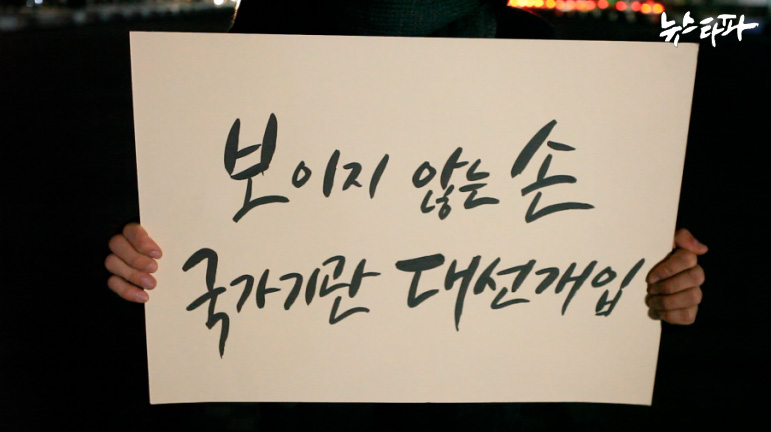 뉴스타파
보이지 않는 손
국가기관 대선개입